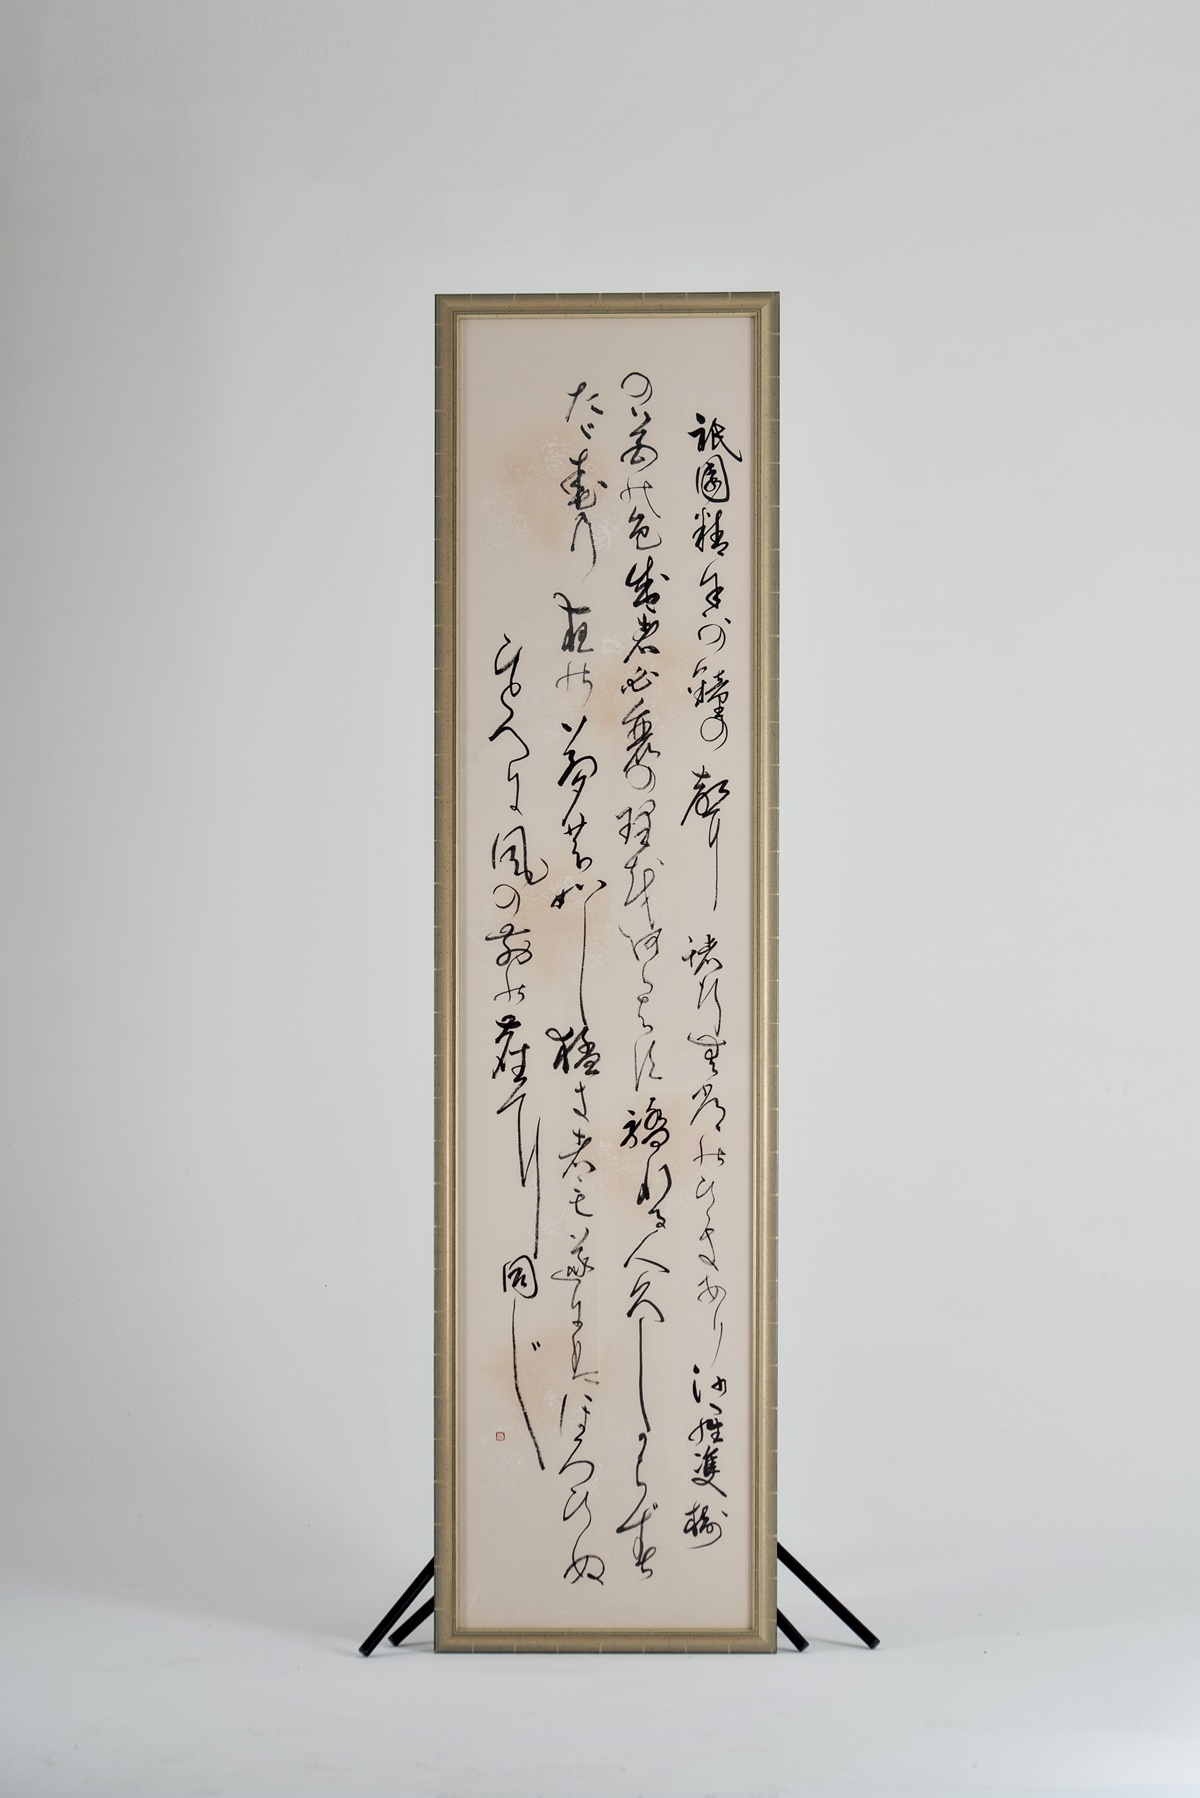 祇園精舎の鐘の聲 諸行無常のひゞきあり 沙羅雙樹
の花の色 盛者必衰の理をあらはす 驕れる人久しからず
たゞ春の夜の夢の如し 猛き者も遂にはほろひぬ
ひとへに風の前の塵に同じ